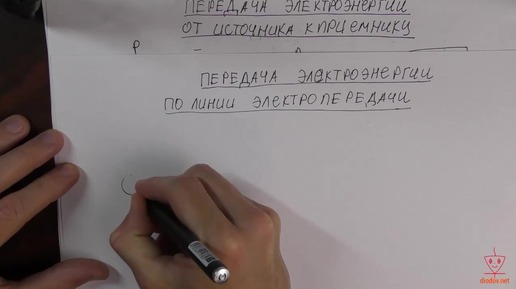 ПЕРЕДАЧА ЭЛЕКТРОЭНЕРГИИ
ОТ ИСТОЧНИКА К ПРИЕМНИКУ
P
ПЕРЕДАЧА ЭЛЕКТРОЭНЕРГИИ
ПО ЛИНИИ ЭЛЕКТРОПЕРЕДАЧИ
diodov.net